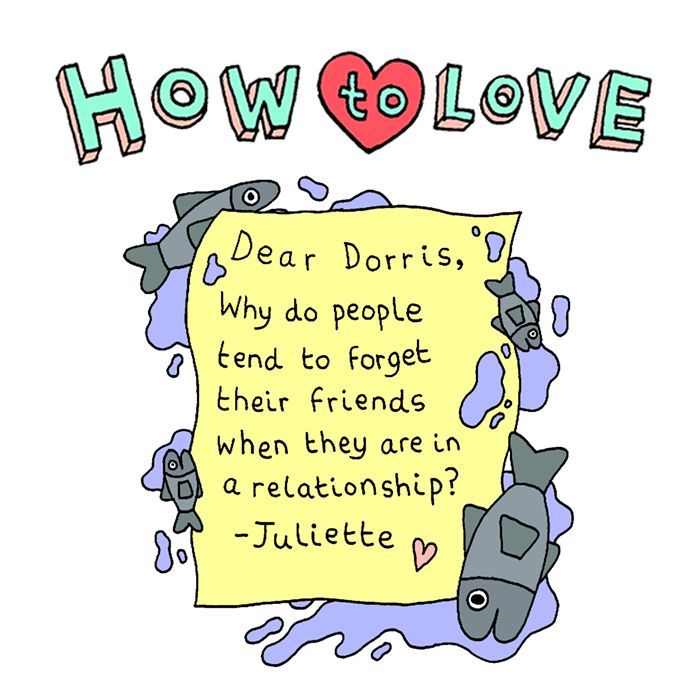 HOW to LOVE
Dear Dorris,
Why do people
tend to forget
their friends
when they are in
a relationship?
-Juliette